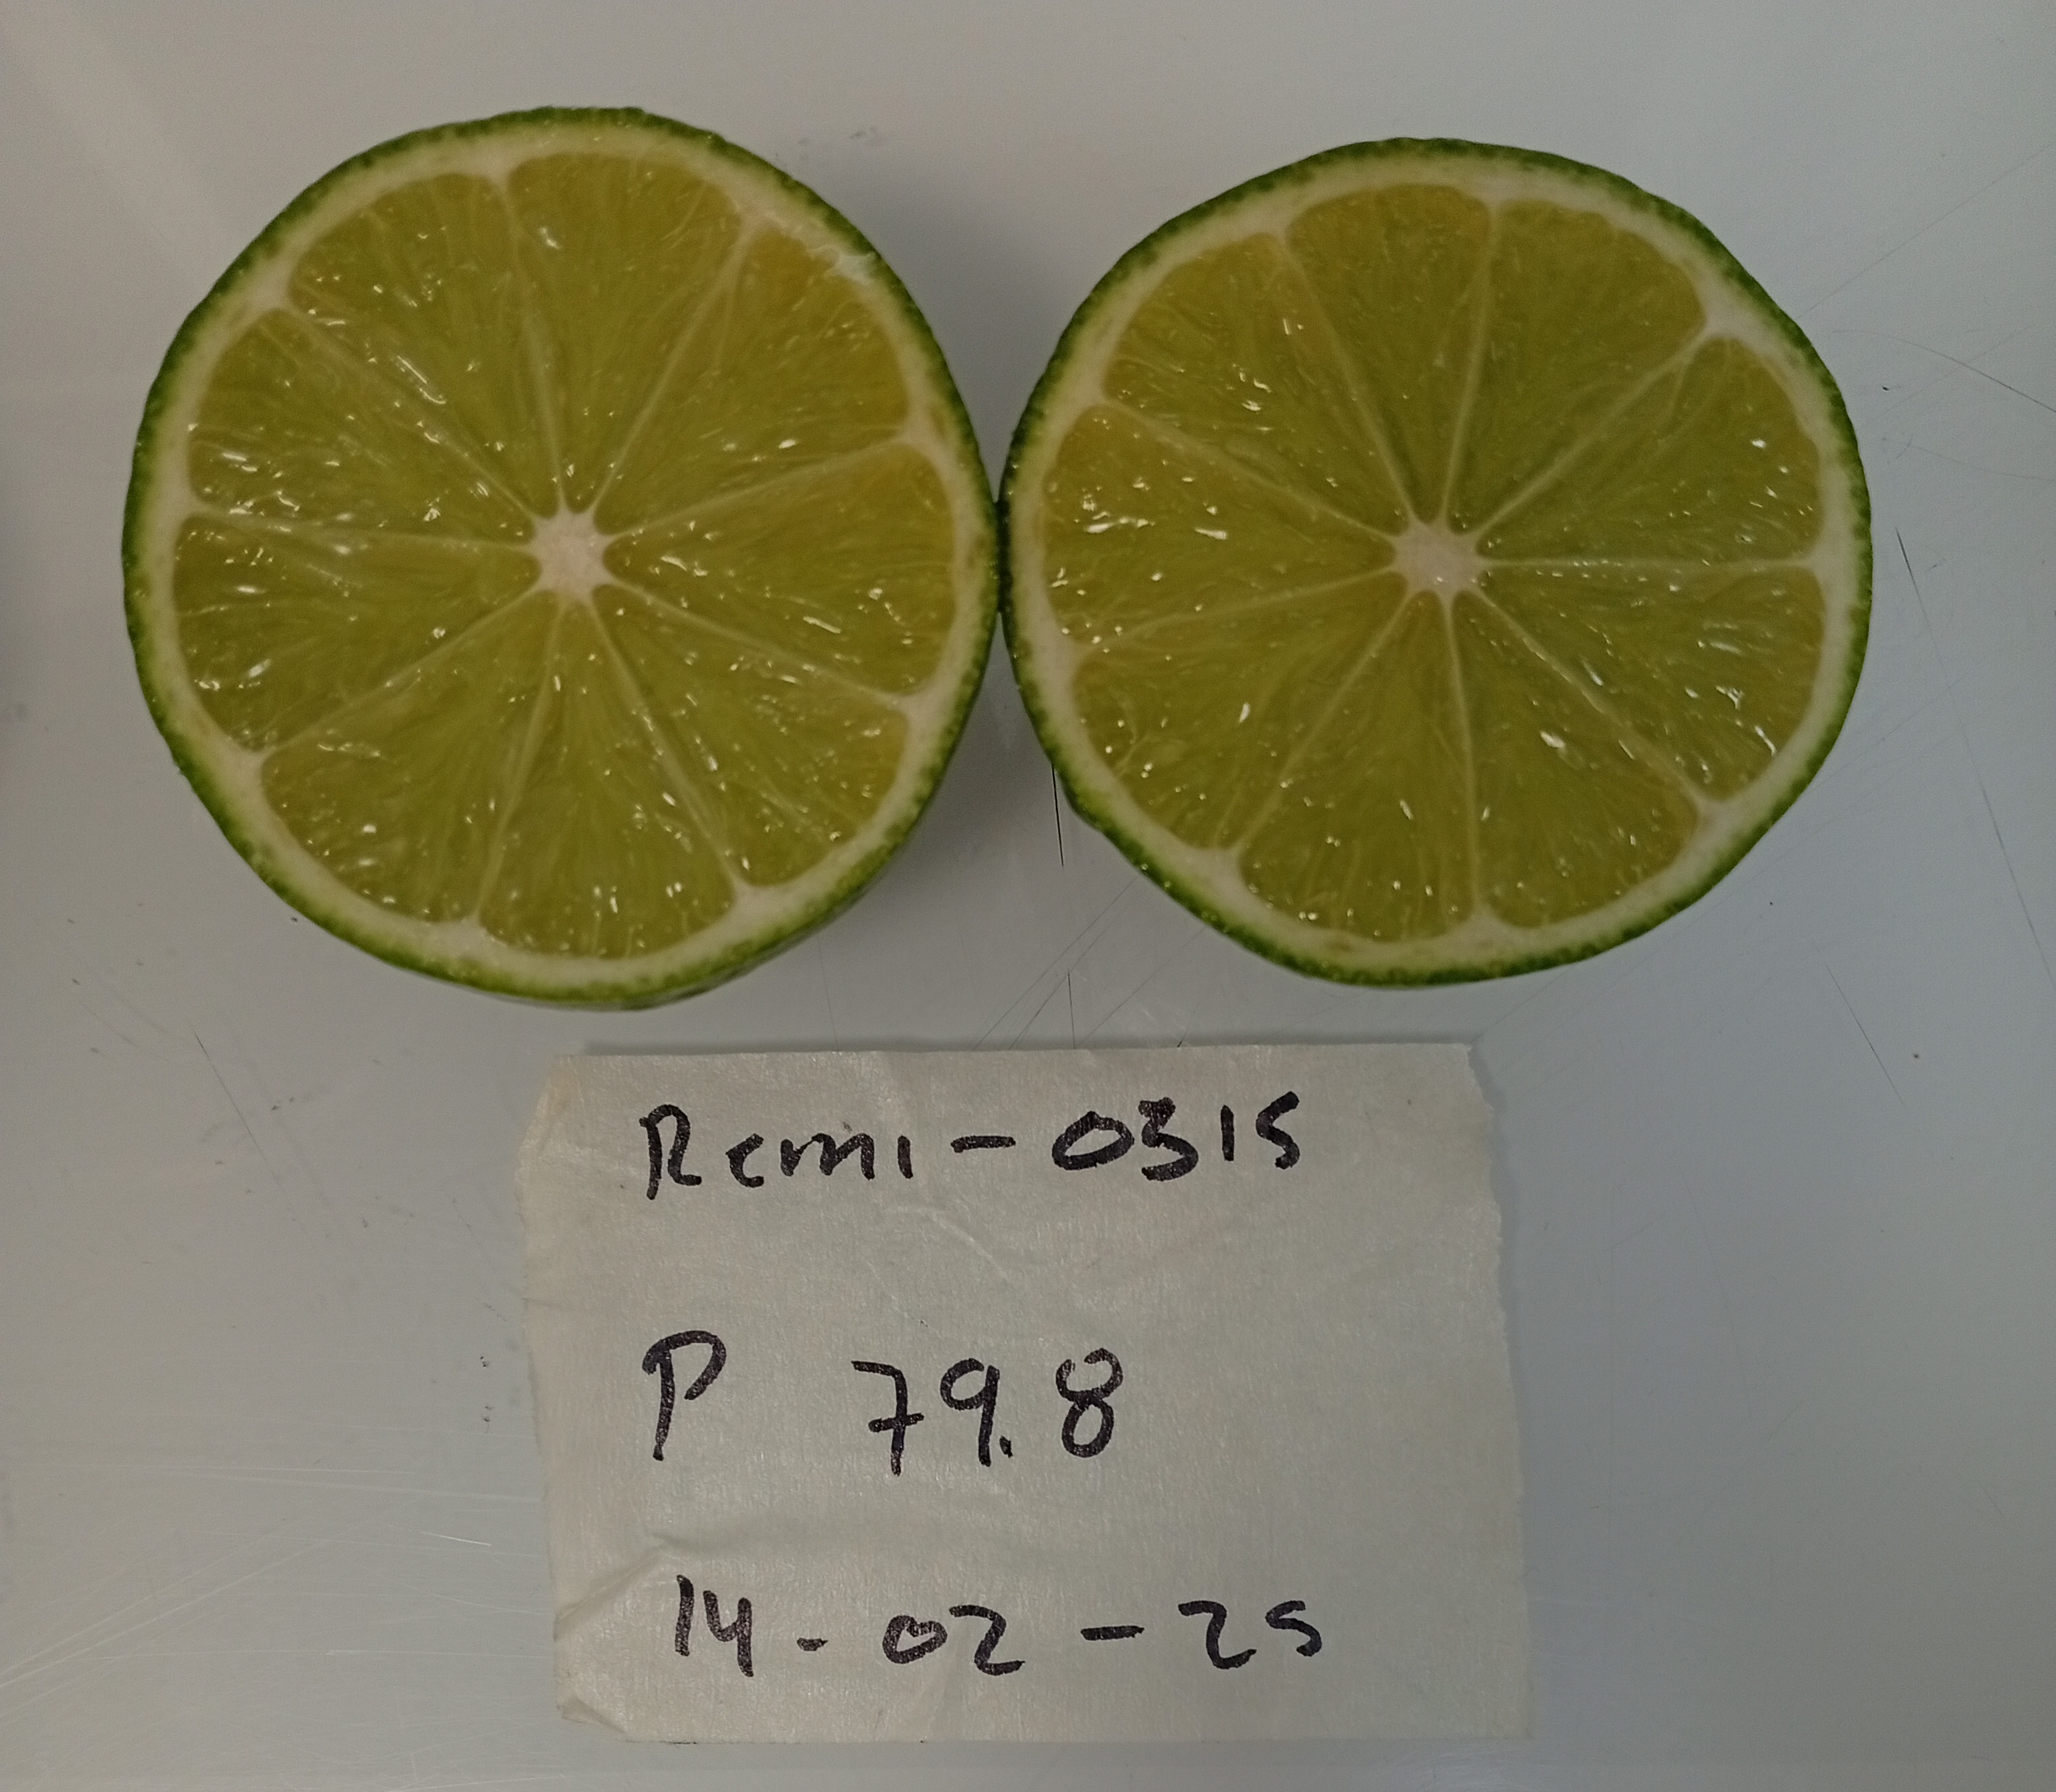 Remi-0315
P 79.8
14-02-25